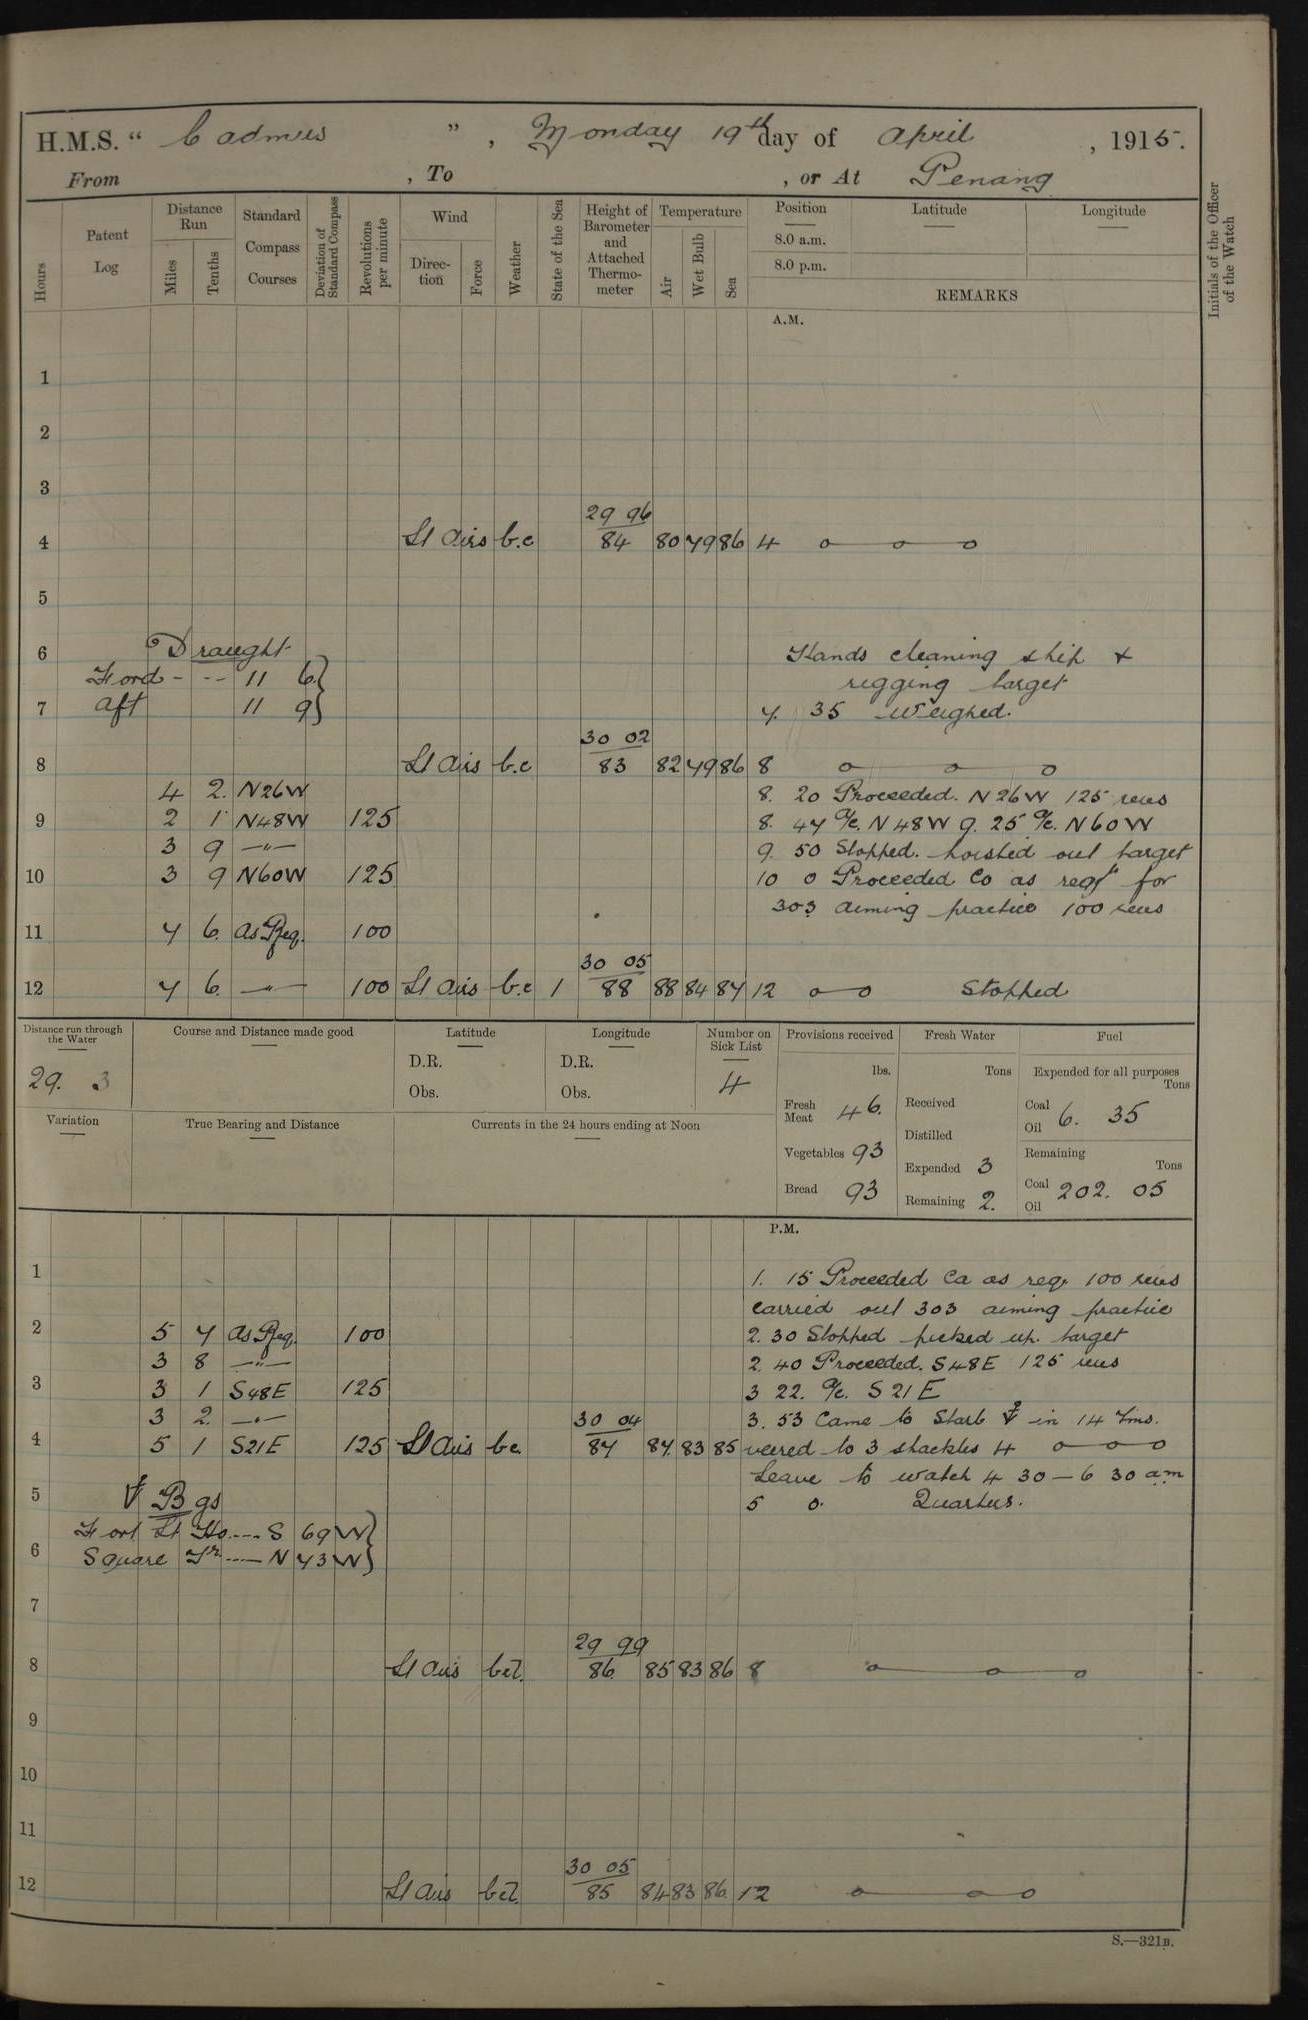 H.M.S. " Cadmus ", Monday 19th day of April, 1915.
From , To , or At Penang
Hours
Patent Log
Distance Run
Miles
Tenths
Standard Compass Courses
Deviation of Standard Compass
Revolutions per minute
Wind
Direction
Force
Weather
State of the Sea
Height of Barometer and Attached Thermometer
Temperature
Air
Wet Bulb
Sea
Position Latitude Longitude
8.0 a.m.
8.0 p.m.
REMARKS
Initials of the Officer of the Watch
A.M.
1
2
3
29 96
4 Lt airs b.c 84 80 79 86 4 o—o—o
5
6 Draught Hands cleaning ship &
Ford - -- 11 6 } rigging target
7 aft 11 9 } 7. 35 Weighed.
30 02
8 Lt airs b.c 83 82 79 86 8 o—o—o
4 2. N26W 8. 20 Proceeded. N26W 125 revs
9 2 1 N48W 125 8. 47 a/c. N48W 9. 25 a/c. N60W
3 9 —"— 9. 50 Stopped. hoisted out target
10 3 9 N60W 125 10 0 Proceeded Co as reqd for
303 aiming practice 100 revs
11 7 6. As Req. 100
30 05
12 7 6. —"— 100 Lt airs b.c 1 88 88 84 87 12 o—o Stopped
Distance run through the Water
29. 3
Course and Distance made good
Latitude
D.R.
Obs.
Longitude
D.R.
Obs.
Number on Sick List
4
Provisions received
lbs.
Fresh Meat 46.
Vegetables 93
Bread 93
Fresh Water
Tons
Received
Distilled
Expended 3
Remaining 2.
Fuel
Expended for all purposes
Tons
Coal
Oil 6. 35
Remaining
Tons
Coal
Oil 202. 05
Variation
True Bearing and Distance
Currents in the 24 hours ending at Noon
P.M.
1 1. 15 Proceeded Co as req. 100 revs
carried out 303 aiming practice
2 5 7 As Req. 100 2. 30 Stopped picked up target
3 8 —"— 2. 40 Proceeded. S48E 125 revs
3 3 1 S48E 125 3 22. a/c. S21E
3 2. —"— 30 04 3. 53 Came to Starb ⚓ in 14 fms.
4 5 1 S21E 125 Lt airs bc. 87 87. 83 85 veered to 3 shackles 4 o—o—o
Leave to watch 4 30 — 6 30 am
5 ⚓ Bgs 5 0. Quarters.
Fort Lt Ho.--- S 69 W }
6 Square Tr --- N 73 W }
7
29 99
8 Lt airs bcl. 86. 85 83 86 8 o—o—o
9
10
11
30 05
12 Lt airs bcl. 85 84 83 86. 12 o—o—o
S.—321B.